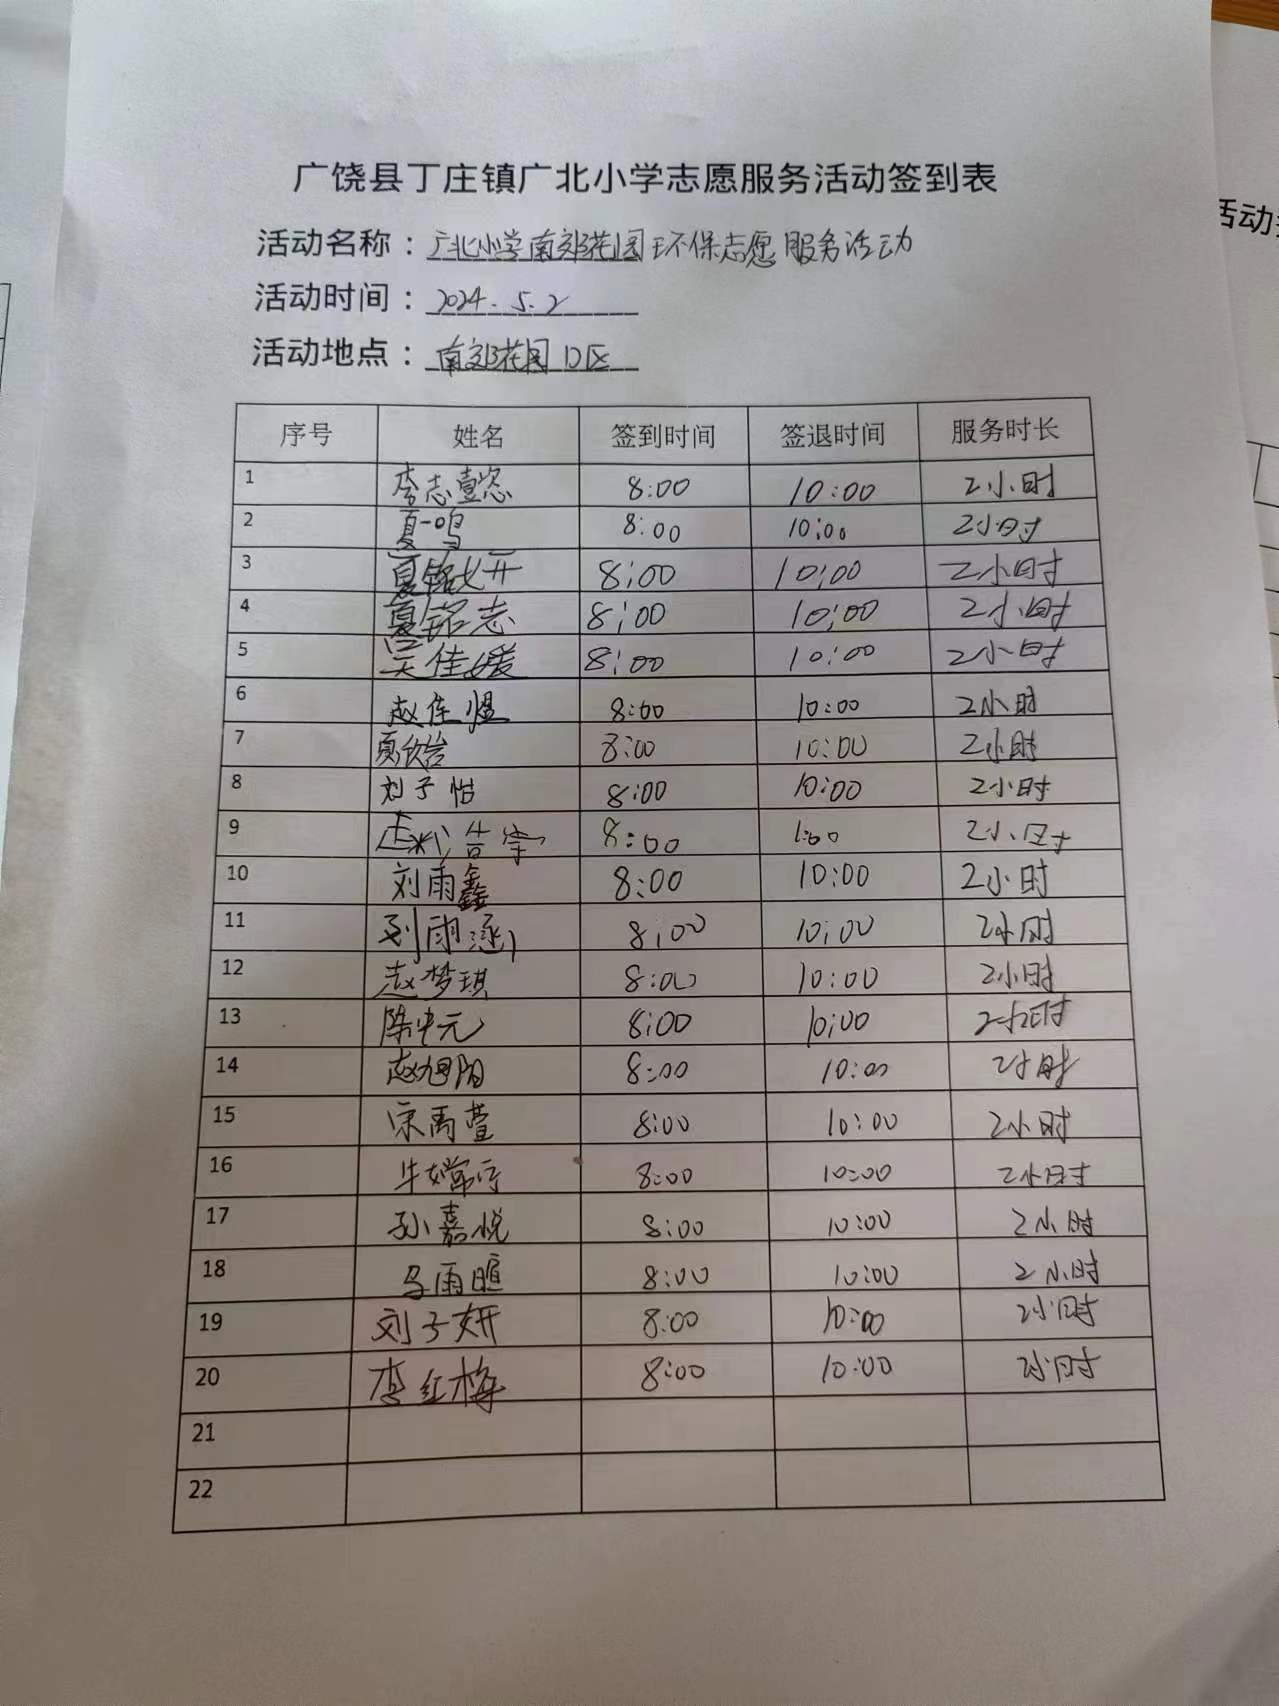 广饶县丁庄镇广北小学志愿服务活动签到表
活动名称：广北小学南郊花园环保志愿服务活动
活动时间：2024.5.2
活动地点：南郊花园D区
序号 姓名 签到时间 签退时间 服务时长
1 李志壹恣 8:00 10:00 2小时
2 夏一鸣 8:00 10:00 2小时
3 夏铭妍 8:00 10:00 2小时
4 夏铭志 8:00 10:00 2小时
5 吴佳媛 8:00 10:00 2小时
6 赵佳煜 8:00 10:00 2小时
7 夏欣岩 8:00 10:00 2小时
8 刘子怡 8:00 10:00 2小时
9 8:00 2小时
10 刘雨鑫 8:00 10:00 2小时
11 刘雨涵 8:00 10:00 2小时
12 赵梦琪 8:00 10:00 2小时
13 陈中元 8:00 10:00 2小时
14 赵旭阳 8:00 10:00 2小时
15 宋禹萱 8:00 10:00 2小时
16 8:00 10:00 2小时
17 孙嘉悦 8:00 10:00 2小时
18 马雨暄 8:00 10:00 2小时
19 刘子妍 8:00 10:00 2小时
20 李红梅 8:00 10:00 2小时
21
22
活动